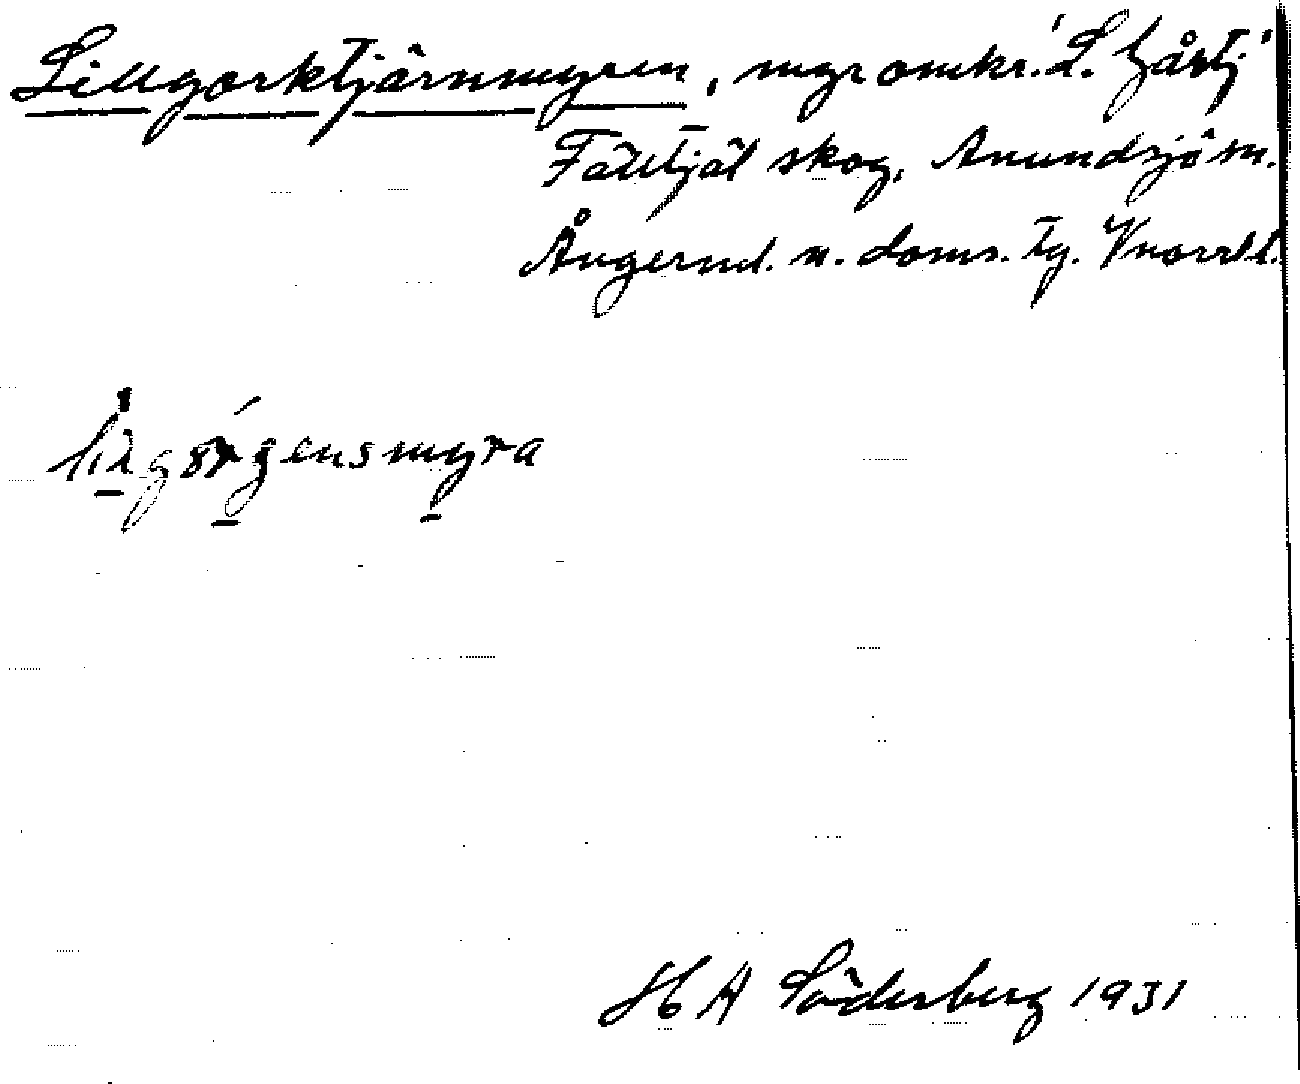 Lillgorktjärnmyren, myr omkr. 'L. Gårktj'
Fälltjäl skog, Anundsjö sn.
Ångermd. n. doms. Tg. Vnorrl l.
H A Söderberg 1931